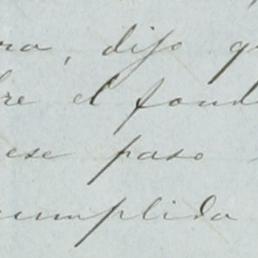 ra, dijo q
re el fond
ese paso
cumplida